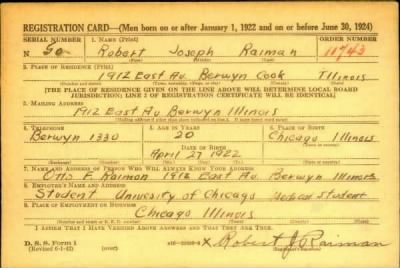 REGISTRATION CARD—(Men born on or after January 1, 1922 and on or before June 30, 1924)
SERIAL NUMBER 1. NAME (Print) ORDER NUMBER
N 50 Robert Joseph Raiman 11743
(First) (Middle) (Last)
2. PLACE OF RESIDENCE (Print)
1912 East Av. Berwyn Cook Illinois
(Number and street) (Town, township, village, or city) (County) (State)
[THE PLACE OF RESIDENCE GIVEN ON THE LINE ABOVE WILL DETERMINE LOCAL BOARD
JURISDICTION; LINE 2 OF REGISTRATION CERTIFICATE WILL BE IDENTICAL]
3. MAILING ADDRESS
1912 East Av Berwyn Illinois
4. TELEPHONE 5. AGE IN YEARS 6. PLACE OF BIRTH
Berwyn 1330 20 Chicago
DATE OF BIRTH
April 27 1922 Illinois
(Exchange) (Number) (Mo.) (Day) (Yr.) (State or country)
7. NAME AND ADDRESS OF PERSON WHO WILL ALWAYS KNOW YOUR ADDRESS
Otto F. Raiman 1912 East Av. Berwyn Illinois
8. EMPLOYER'S NAME AND ADDRESS
Student University of Chicago Student
9. PLACE OF EMPLOYMENT OR BUSINESS
Chicago Illinois
(Number and street or R. F. D. number) (Town) (County) (State)
I AFFIRM THAT I HAVE VERIFIED ABOVE ANSWERS AND THAT THEY ARE TRUE.
D. S. S. Form 1
(Revised 6-1-42) X Robert J Raiman